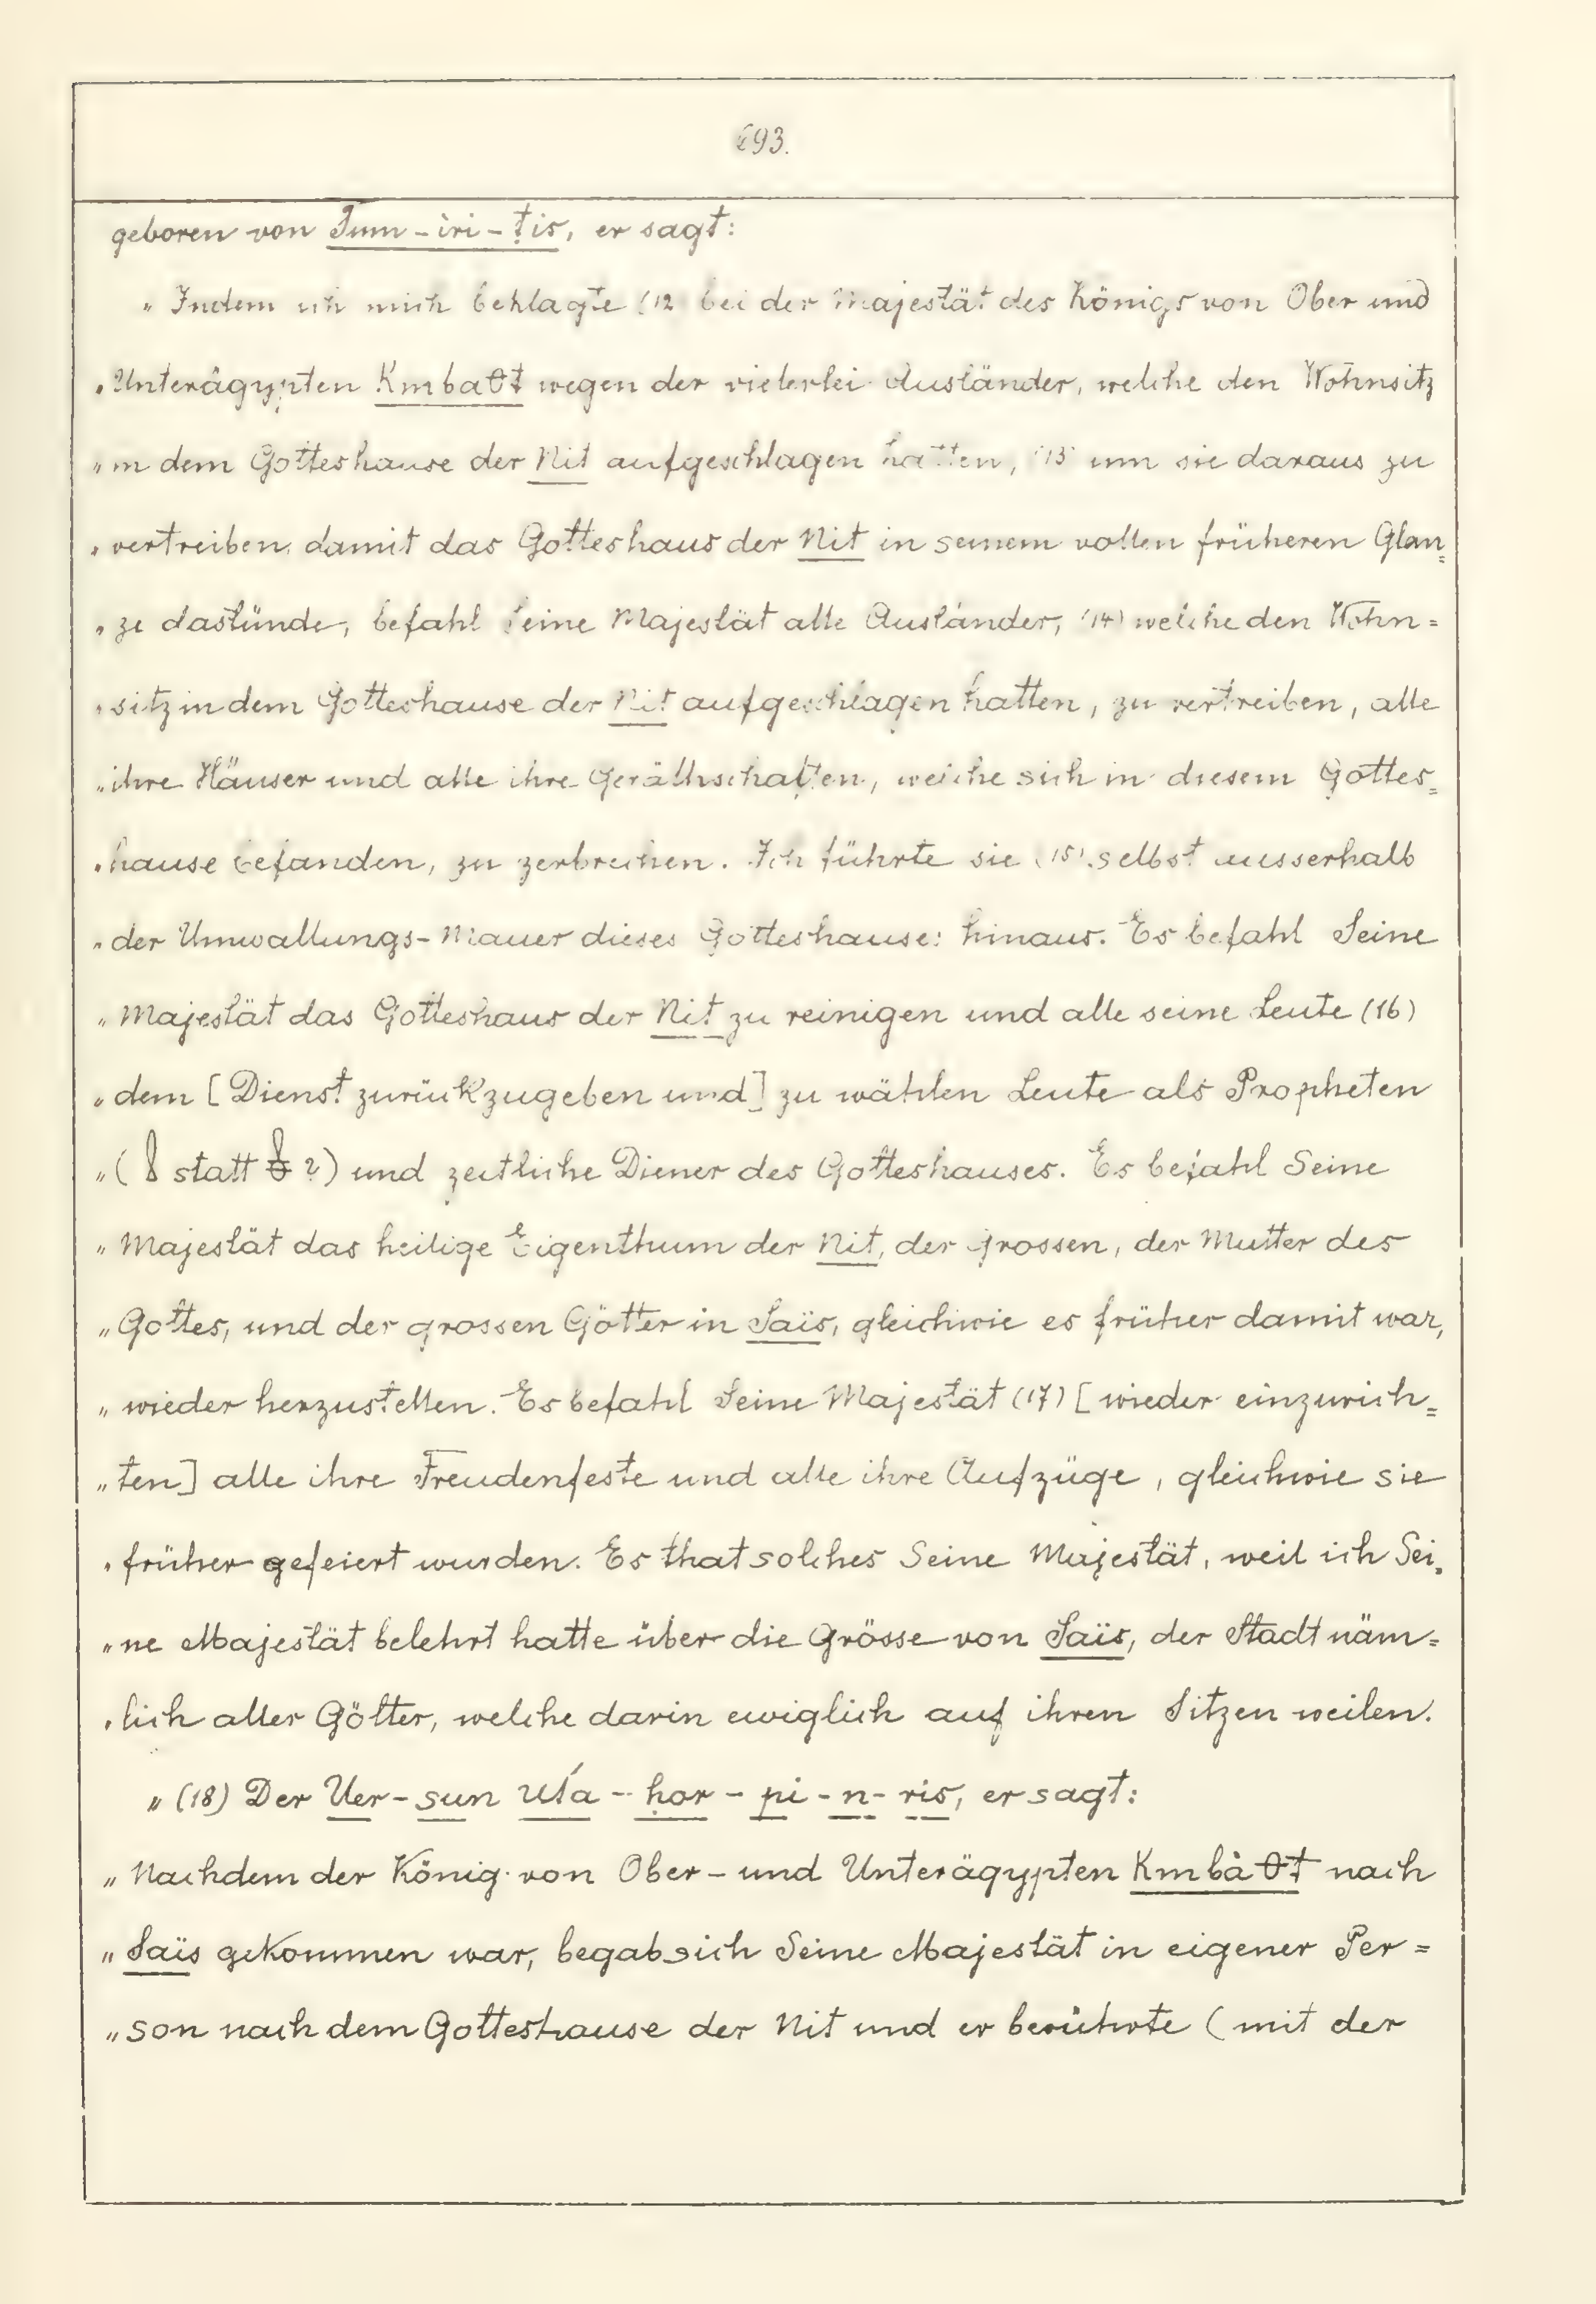 693.
geboren von Tum-iri-tis, er sagt:
„Indem ich mich beklagte (12) bei der Majestät des Königs von Ober und
„Unterägypten Kmbaθt wegen der vielerlei Ausländer, welche den Wohnsitz
„in dem Gotteshause der Nit aufgeschlagen hatten, (13) um sie daraus zu
„vertreiben, damit das Gotteshaus der Nit in seinem vollen früheren Glan=
„ze dastünde, befahl Seine Majestät alle Ausländer, (14) welche den Wohn=
„sitz in dem Gotteshause der Nit aufgeschlagen hatten, zu vertreiben, alle
„ihre Häuser und alle ihre Geräthschaften, welche sich in diesem Gottes=
„hause befanden, zu zerbrechen. Ich führte sie (15) selbst ausserhalb
„der Umwallungs-Mauer dieses Gotteshauses hinaus. Es befahl Seine
„Majestät das Gotteshaus der Nit zu reinigen und alle seine Leute (16)
„dem [Dienst zurückzugeben und] zu wählen Leute als Propheten
„( statt ?) und zeitliche Diener des Gotteshauses. Es befahl Seine
„Majestät das heilige Eigenthum der Nit, der grossen, der Mutter des
„Gottes, und der grossen Götter in Saïs, gleichwie es früher damit war,
„wieder herzustellen. Es befahl Seine Majestät (17) [wieder einzurich=
„ten] alle ihre Freudenfeste und alle ihre Aufzüge, gleichwie sie
„früher gefeiert wurden. Es that solches Seine Majestät, weil ich Sei=
„ne Majestät belehrt hatte über die Grösse von Saïs, der Stadt näm=
„lich aller Götter, welche darin ewiglich auf ihren Sitzen weilen.
„(18) Der Uer-sun Uťa-ḥor-pi-n-ris, er sagt:
„Nachdem der König von Ober- und Unterägypten Kmbàθt nach
„Saïs gekommen war, begab sich Seine Majestät in eigener Per=
„son nach dem Gotteshause der Nit und er berührte (mit der